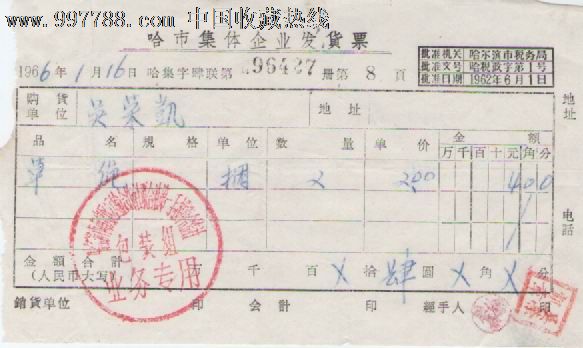 www.997788.com 中国收藏热线
哈市集体企业发货票
1966年1月16日 哈集字肆联第096427册第8頁
批准机关 哈尔滨市税务局
批准文号 哈税政字第1号
批准日期 1962年6月1日
购货单位 吴英凯 地址
品名 規格 单位 数量 单价 金額
万千百十元角分
草绳 捆 2 2.00 400
包装组
业务专用
金額合計(人民币大写) 万 千 百 X 拾 肆 圆 X 角 X 分
電話
銷貨单位 印 会計 印 經手人 印